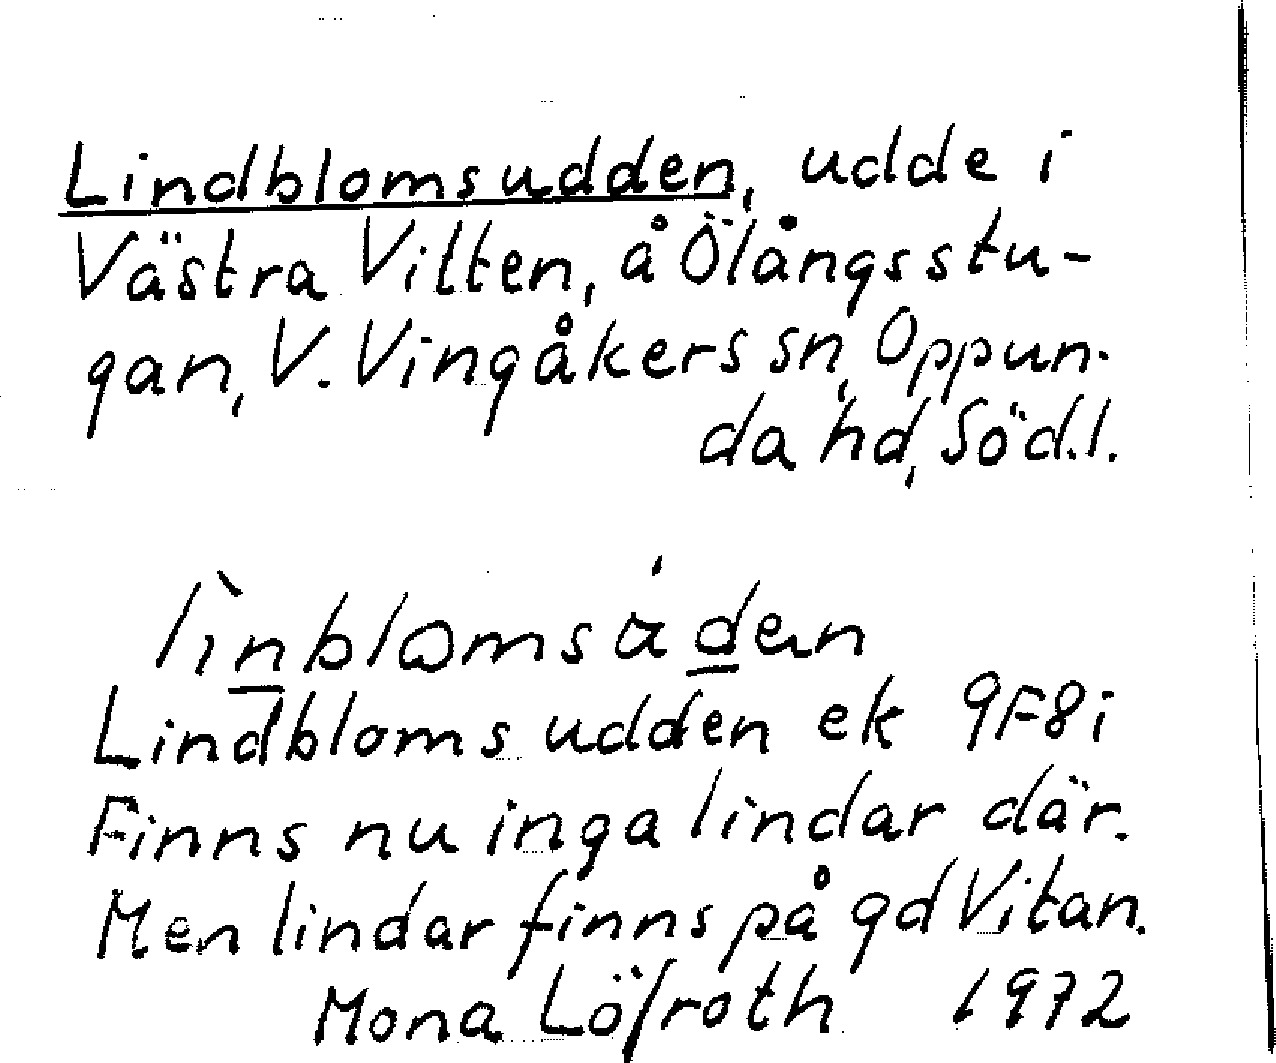 Lindblomsudden, udde i
Västra Vilten, å Ölångsstu-
gan, V. Vingåkers sn, Oppun-
da hd, Söd.l.
lìnblomsa̍den
Lindbloms udden ek 9F8i
Finns nu inga lindar där.
Men lindar finns på gd Vitan.
Mona Löfroth 1972